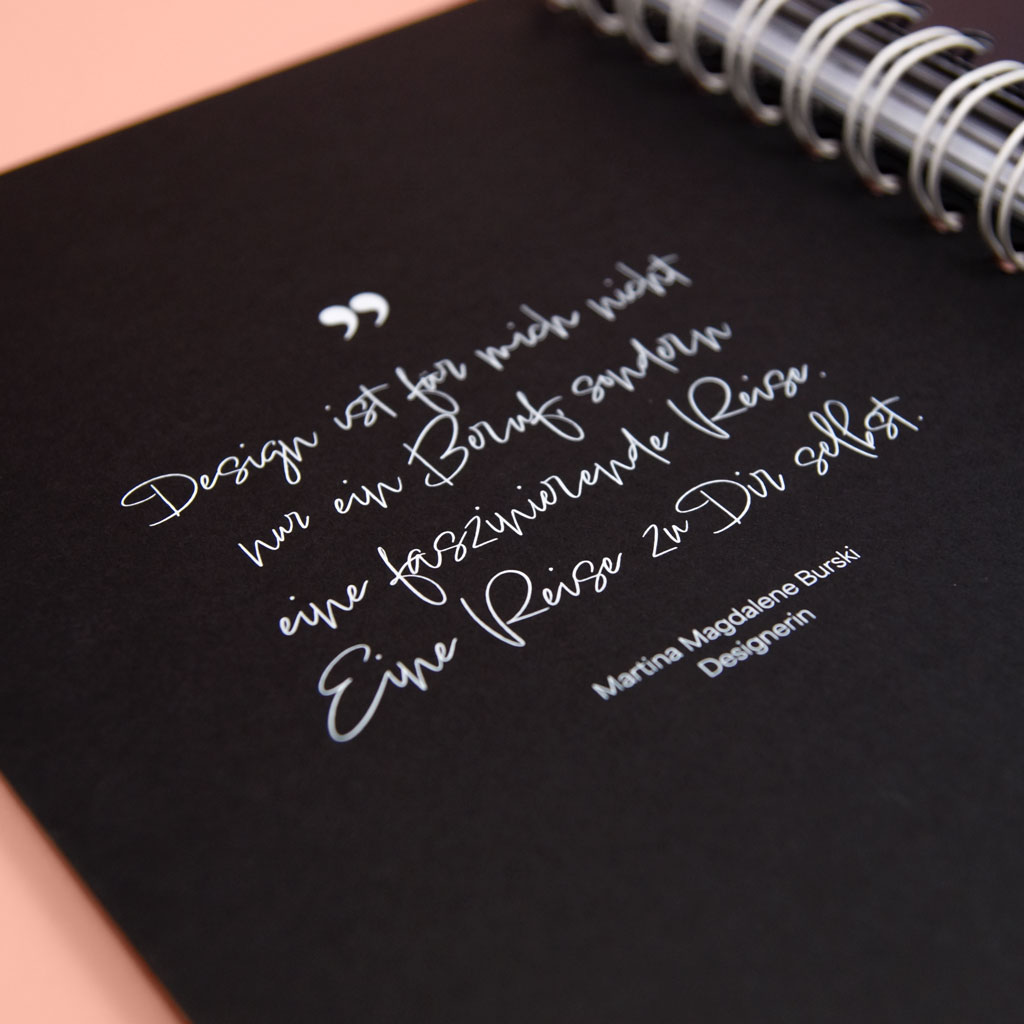 ”
Design ist für mich nicht
nur ein Beruf, sondern
eine faszinierende Reise.
Eine Reise zu Dir selbst.
Martina Magdalene Burski
Designerin